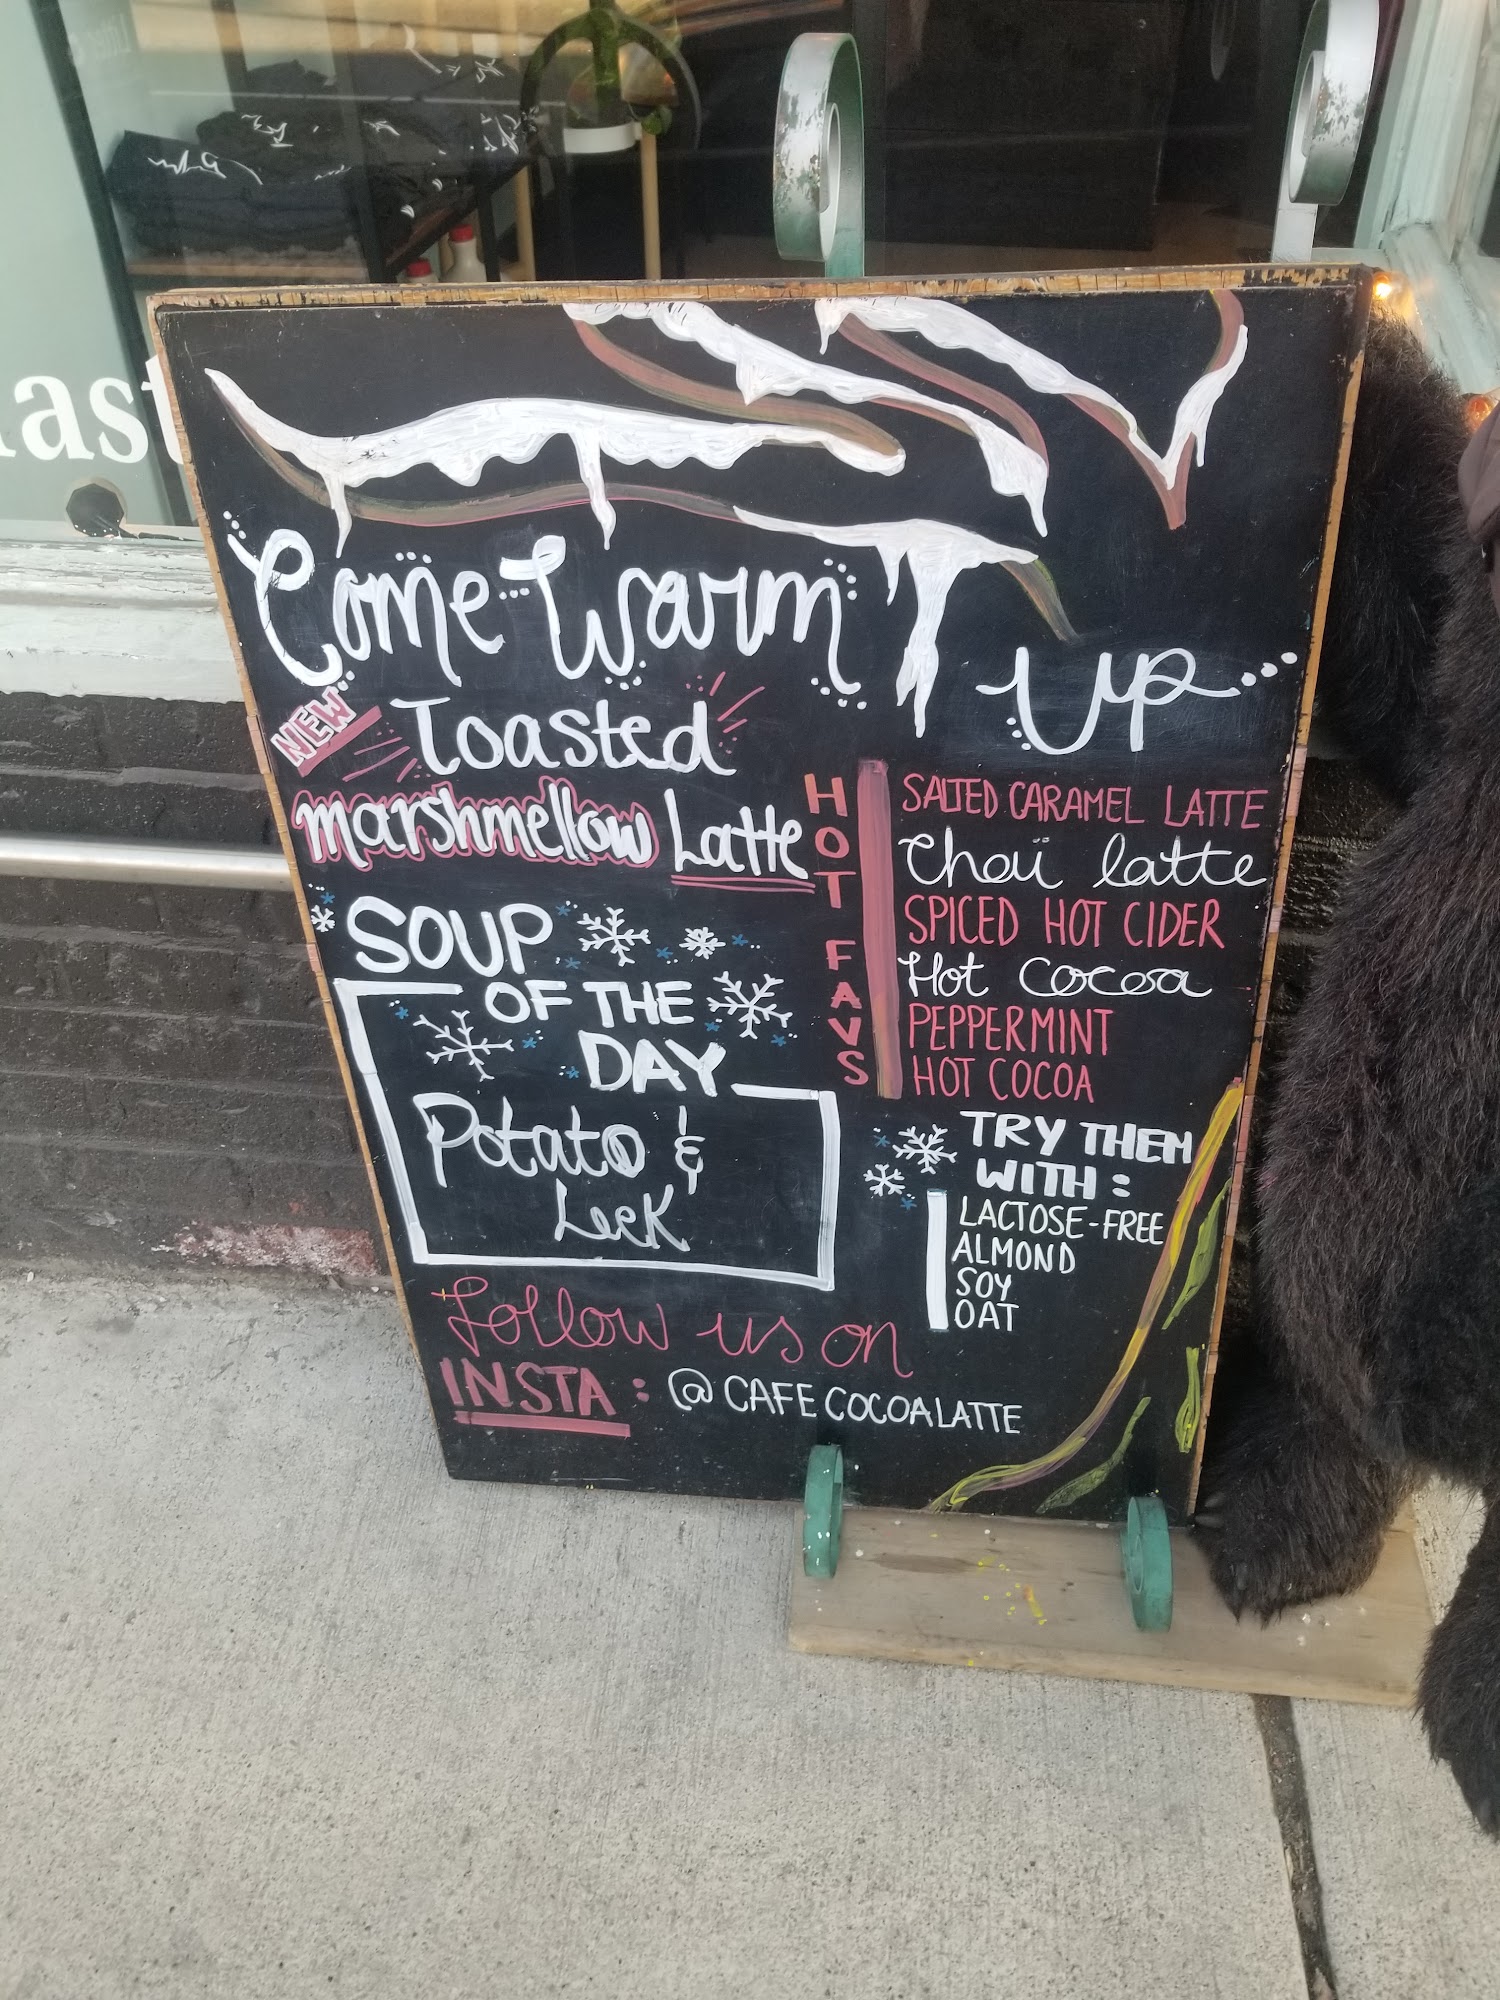 ast
Come Warm
Up
NEW
Toasted
marshmellow Latte
SOUP
OF THE
DAY
Potato &
Leek
HOT FAVS
SALTED CARAMEL LATTE
Chai latte
SPICED HOT CIDER
Hot Cocoa
PEPPERMINT
HOT COCOA
TRY THEM
WITH:
LACTOSE-FREE
ALMOND
SOY
OAT
Follow us on
INSTA: @CAFECOCOALATTE